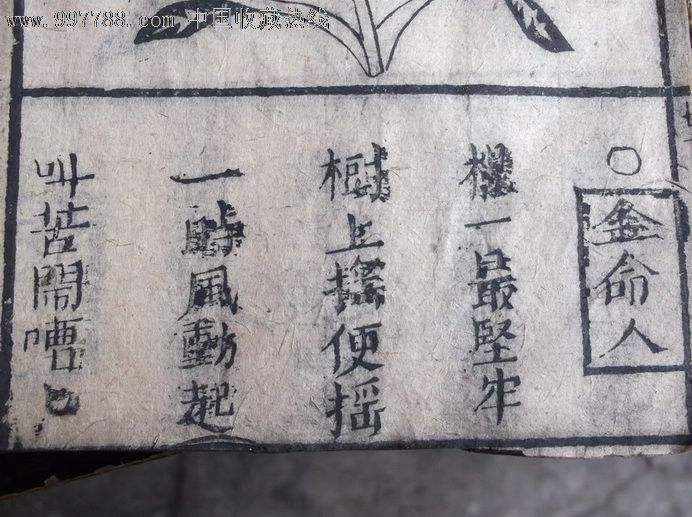 www.997788.com 中国收藏热线
○金命人
一最堅牢
樹上搖便揺
一時風動起
叫苦鬧嘈